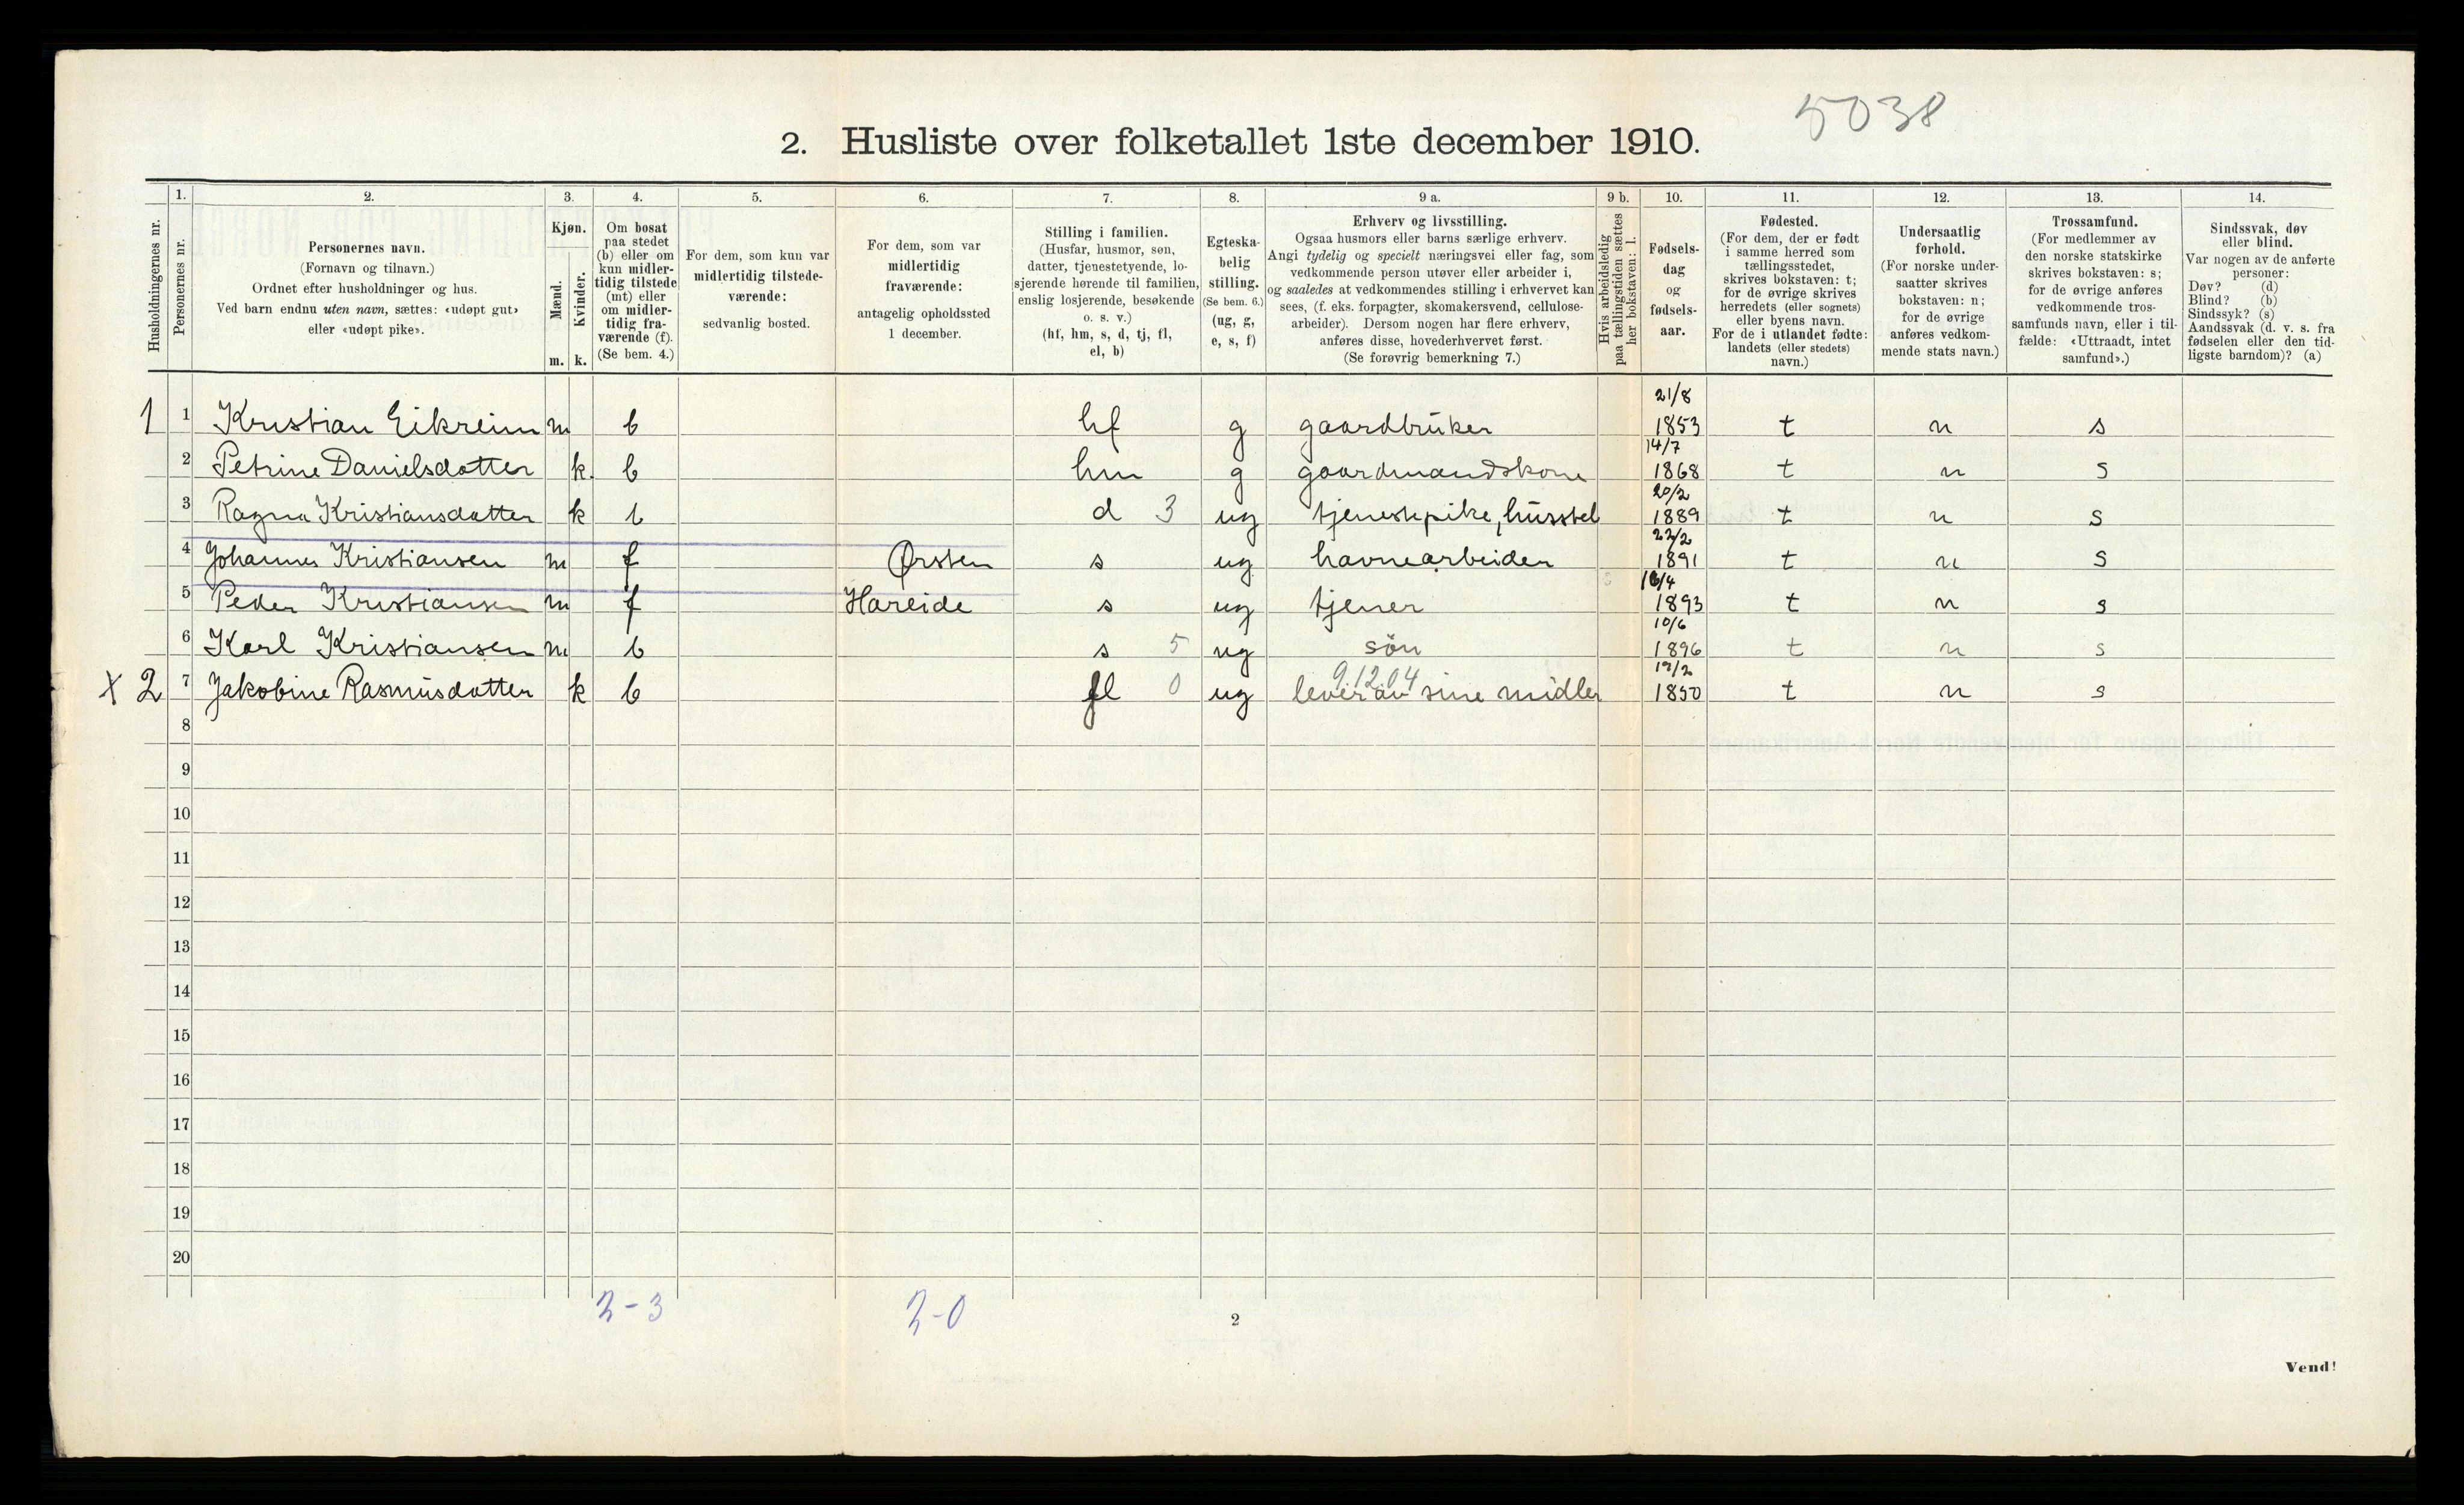 5038
2. Husliste over folketallet 1ste december 1910.
Husholdningernes nr.
1.
Personernes nr.
2.
Personernes navn.
(Fornavn og tilnavn.)
Ordnet efter husholdninger og hus.
Ved barn endnu uten navn, sættes: «udøpt gut»
eller «udøpt pike».
3.
Kjøn.
Mænd.
Kvinder.
m. k.
4.
Om bosat
paa stedet
(b) eller om
kun midler-
tidig tilstede
(mt) eller
om midler-
tidig fra-
værende (f).
(Se bem. 4.)
5.
For dem, som kun var
midlertidig tilstede-
værende:
sedvanlig bosted.
6.
For dem, som var
midlertidig
fraværende:
antagelig opholdssted
1 december.
7.
Stilling i familien.
(Husfar, husmor, søn,
datter, tjenestetyende, lo-
sjerende hørende til familien,
enslig losjerende, besøkende
o. s. v.)
(hf, hm, s, d, tj, fl,
el, b)
8.
Egteska-
belig
stilling.
(Se bem. 6.)
(ug, g,
e, s, f)
9 a.
Erhverv og livsstilling.
Ogsaa husmors eller barns særlige erhverv.
Angi tydelig og specielt næringsvei eller fag, som
vedkommende person utøver eller arbeider i,
og saaledes at vedkommendes stilling i erhvervet kan
sees, (f. eks. forpagter, skomakersvend, cellulose-
arbeider). Dersom nogen har flere erhverv,
anføres disse, hovederhvervet først.
(Se forøvrig bemerkning 7.)
9 b.
Hvis arbeidsledig
paa tællingstiden sættes
her bokstaven: l.
10.
Fødsels-
dag
og
fødsels-
aar.
11.
Fødested.
(For dem, der er født
i samme herred som
tællingsstedet,
skrives bokstaven: t;
for de øvrige skrives
herredets (eller sognets)
eller byens navn.
For de i utlandet fødte:
landets (eller stedets)
navn.)
12.
Undersaatlig
forhold.
(For norske under-
saatter skrives
bokstaven: n;
for de øvrige
anføres vedkom-
mende stats navn.)
13.
Trossamfund.
(For medlemmer av
den norske statskirke
skrives bokstaven: s;
for de øvrige anføres
vedkommende tros-
samfunds navn, eller i til-
fælde: «Uttraadt, intet
samfund».)
14.
Sindssvak, døv
eller blind.
Var nogen av de anførte
personer:
Døv? (d)
Blind? (b)
Sindssyk? (s)
Aandssvak (d. v. s. fra
fødselen eller den tid-
ligste barndom)? (a)
1 1 Kristian Eikreim m b hf g gaardbruker 21/8 1853 t n s
2 Petrine Danielsdatter k. b hm g gaardmandskone 14/7 1868 t n s
3 Ragna Kristiansdatter k b d 3 ug tjenestepike, husstel 20/2 1889 t n s
4 Johannes Kristiansen m f Ørsten s ug havnearbeider 22/2 1891 t n s
5 Peder Kristiansen m f Hareide s ug tjener 16/4 1893 t n s
6 Karl Kristiansen m b s 5 ug søn 10/6 1896 t n s
x 2 7 Jakobine Rasmusdatter k b fl 0 ug 9.12.04 lever av sine midler 19/2 1850 t n s
8
9
10
11
12
13
14
15
16
17
18
19
20
2-3 2-0
2
Vend!